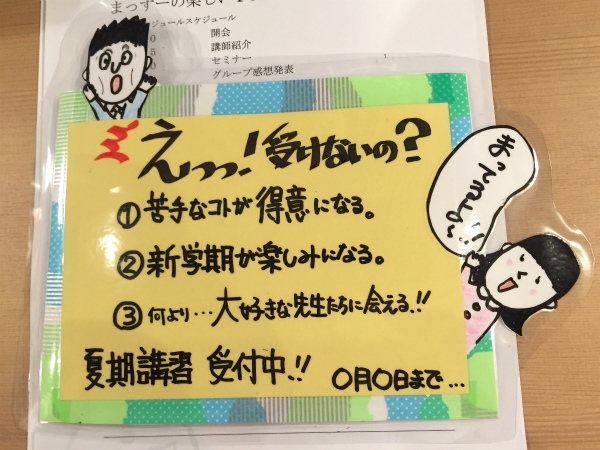 まっすーの楽しい
ジュールスケジュール
開会
講師紹介
セミナー
グループ感想発表
えっっ!受けないの?
①苦手なコトが得意になる。
②新学期が楽しみになる。
③何より…大好きな先生たちに会える!!
夏期講習 受付中!! 0月0日まで…
まってるよ〜!!